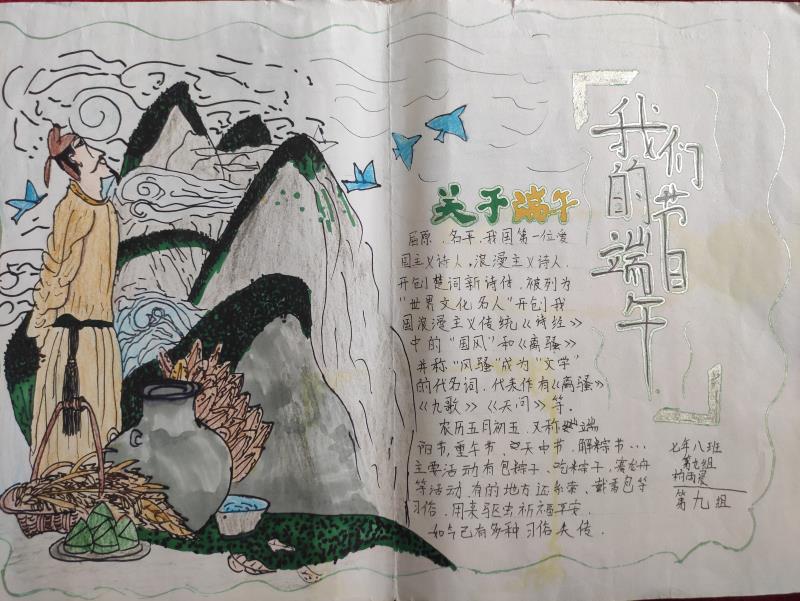 我们的节目
端午
关于端午
屈原．名平．我国第一位爱
国主义诗人，浪漫主义诗人．
开创楚词新诗体．被列为
“世界文化名人”开创我
国浪漫主义传统《诗经》
中的“国风”和《离骚》
并称“风骚”成为“文学”
的代名词．代表作有《离骚》
《九歌》《天问》等。
农历五月初五．又称端
阳节，重午节、天中节．解粽节…
主要活动有包粽子、吃粽子，赛龙舟
等活动．有的地方还系索、戴香包等
习俗．用来驱虫祈福平安．
如今已有多种习俗失传．
七年八班
第九组
第九组